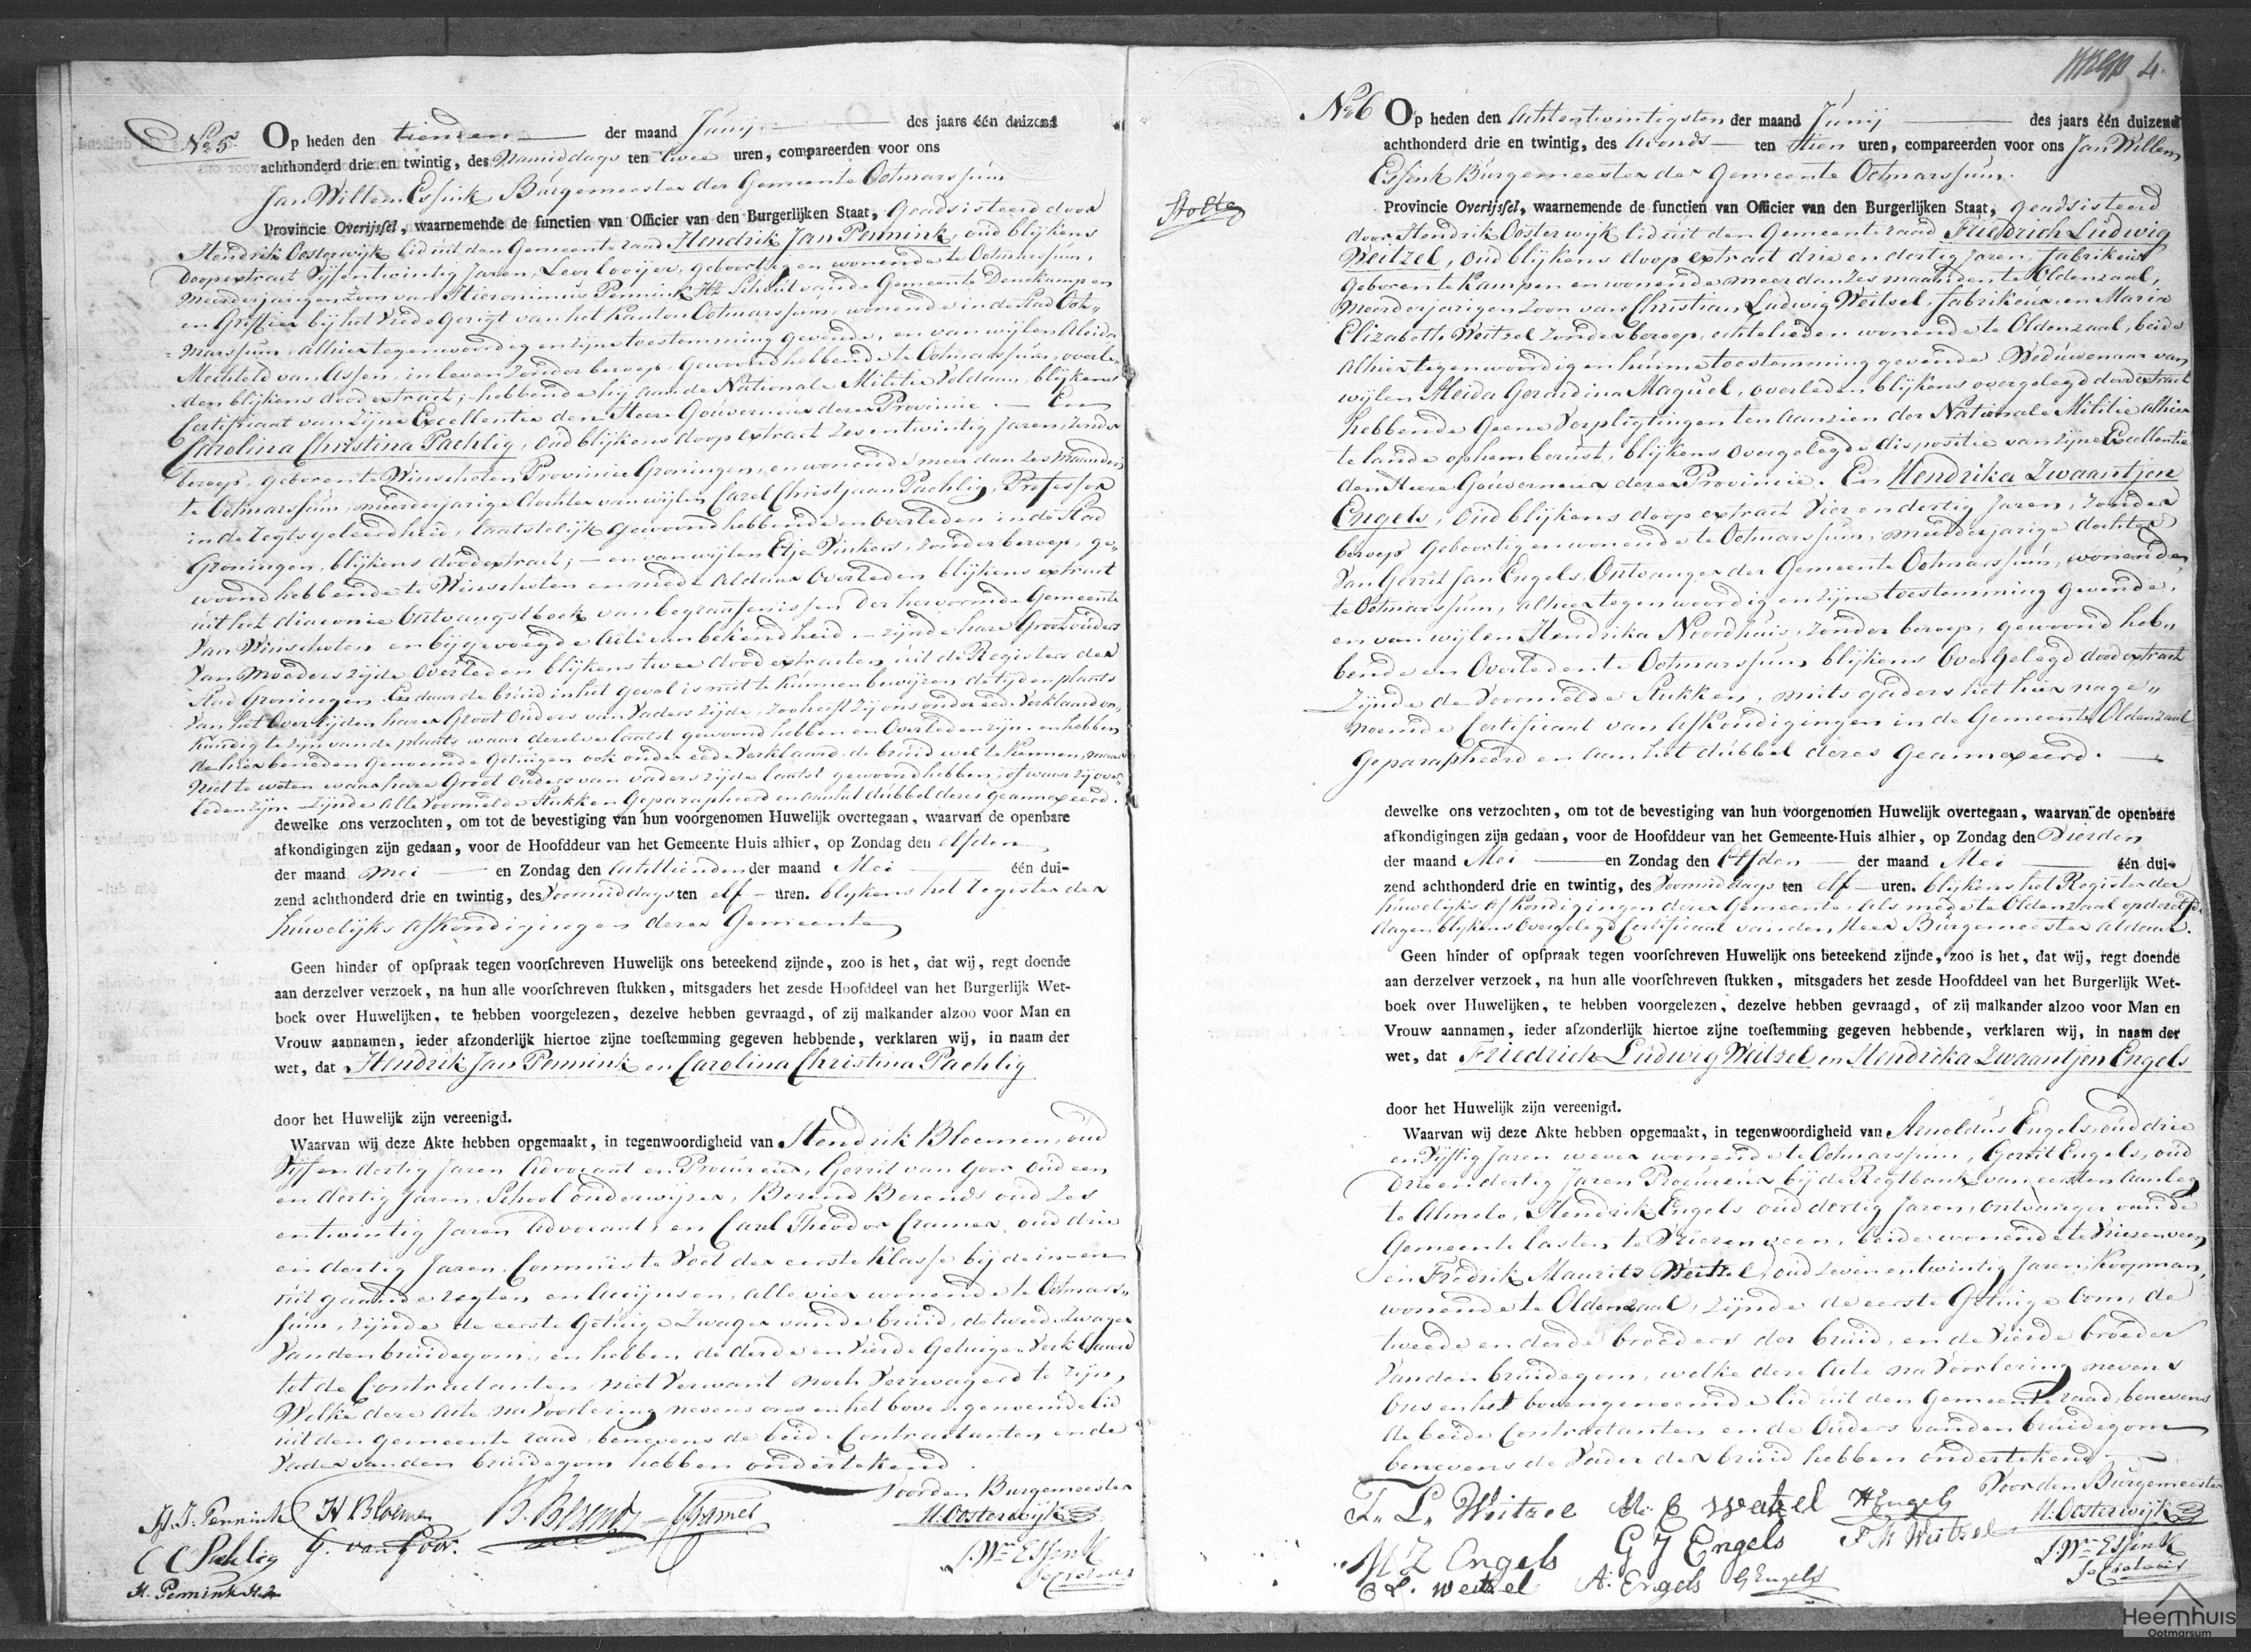 No 5. Op heden den tienden der maand Junij des jaars één duizend
achthonderd drie en twintig, des Namiddags ten twee uren, compareerden voor ons
Jan Willem Essink, Burgemeester der Gemeente Ootmarssum
Provincie Overijssel, waarnemende de functien van Officier van den Burgerlijken Staat, geadsisteerd door
Hendrik Oosterwijk lid uit den Gemeente raad Hendrik Jan Pennink, oud blijkens
Doopextract Vijfentwintig Jaren, Leerlooijer, geboortig en wonende te Ootmarssum,
Meerderjarigen Zoon van Hieronimus Pennink Hz Schout van de Gemeente Denekamp en
en Griffier bij het Vrede Gerigt van het Kanton Ootmarssum, wonende in de Stad Oot„
marssum, alhier tegenwoordig en zijne toestemming gevende, en van wijlen Aleida
Mechteld van Assen, in leven zonder beroep, gewoond hebbende te Ootmarssum, overle„
den blijkens dood extract; hebbende hij aan de Nationale Militie Voldaan, blijkens
Certificaat van Zijne Excellentie den Heere Gouverneur dezer Provincie. — En
Carolina Christina Pachlig, oud blijkens doop extract Zes en twintig Jaren, zonder
beroep, geboren te Winschoten Provincie Groningen, en wonende meer dan zes maanden
te Ootmarssum, meerderjarige dochter van wijlen Carel Christjaan Pachlig, Professor
in de Regtsgeleerdheid, laatstelijk gewoond hebbende en Overleden in de Stad
Groningen, blijkens dood extract; — en van wijlen Etje Vinkers, zonder beroep, ge„
woond hebbende te Winschoten en mede aldaar Overleden blijkens extract
uit het diaconie Ontvangstboek van begraafenissen der hervormde Gemeente
Van Winschoten en bijgevoegde Acte van bekendheid. — zijnde hare Grootouders
Van Moeders zijde Overleden blijkens twee dood extracten uit de Registers der
Stad Groningen. En daar de bruid in het geval is niet te kunnen bewijzen de tijd en plaats
Van het Overlijden harer Groot Ouders van Vaders zijde, zoo heeft zij ons onder eede Verklaard on„
kundig te zijn van de plaats waar dezelve laatst gewoond hebben en Overleden zijn en hebben
de hier beneden genoemde Getuigen ook onder eede Verklaard, de bruid wel te kennen, maar
Niet te weten waar hare Groot Ouders van vaders zijde laatst gewoond hebben, of waar zij over„
leden zijn. Zijnde alle Voormelde Stukken Geparapheerd en aan het dubbel dezes geannexeerd.
dewelke ons verzochten, om tot de bevestiging van hun voorgenomen Huwelijk overtegaan, waarvan de openbare
afkondigingen zijn gedaan, voor de Hoofddeur van het Gemeente Huis alhier, op Zondag den elfden
der maand Mei en Zondag den Achttienden der maand Mei één dui-
zend achthonderd drie en twintig, des Voormiddags ten elf uren. blijkens het register der
huwelijks Afkondigingen dezer Gemeente
Geen hinder of opspraak tegen voorschreven Huwelijk ons beteekend zijnde, zoo is het, dat wij, regt doende
aan derzelver verzoek, na hun alle voorschreven stukken, mitsgaders het zesde Hoofddeel van het Burgerlijk Wet-
boek over Huwelijken, te hebben voorgelezen, dezelve hebben gevraagd, of zij malkander alzoo voor Man en
Vrouw aannamen, ieder afzonderlijk hiertoe zijne toestemming gegeven hebbende, verklaren wij, in naam der
wet, dat Hendrik Jan Pennink en Carolina Christina Pachlig
door het Huwelijk zijn vereenigd.
Waarvan wij deze Akte hebben opgemaakt, in tegenwoordigheid van Hendrik Bloemen, oud
Vijf en dertig Jaren Advocaat en Procureur, Gerrit van Goor oud een
en dertig Jaren, School onderwijzer, Berend Berends oud Zes
en twintig Jaren Advocaat, en Carel Theodor Cramer, oud drie
en dertig Jaren, Commies te Voet der eerste klasse bij de in en
uit gaande regten en Accijnsen, alle vier wonende te Ootmars„
sum, zijnde de eerste Getuige Zwager van de bruid, de tweede Zwager
Van den bruidegom, en hebben de derde en Vierde Getuigen Verklaard
tot de Contractanten niet Verwant noch Verzwagerd te zijn,
Welke deze Acte na Voorlezing nevens ons en het boven genoemde lid
uit den gemeente raad, benevens de beide Contractanten en de
Vader van den bruidegom hebben ondertekend.
Voor den Burgemeester
H. J. Pennink H Bloemen B. Berends Cramer H. Oosterwijk
C C Pachlig G. van Goor. J. Wm Essink
H. Pennink Hz Secretaris
4.
No 6 Op heden den Achtentwintigsten der maand Junij des jaars één duizend
achthonderd drie en twintig, des Avonds ten tien uren, compareerden voor ons Jan Willem
Essink Burgemeester der Gemeente Ootmarssum.
Stolte
Provincie Overijssel, waarnemende de functien van Officier van den Burgerlijken Staat, geadsisteerd
door Hendrik Oosterwijk lid uit den Gemeente raad Friedrich Ludwig
Weitzel, oud blijkens doop extract drie en dertig Jaren, fabrikeur
geboren te Kampen en wonende meer dan zes maanden te Oldenzaal,
Meerderjarigen Zoon van Christian Ludwig Weitzel, fabrikeur en Maria
Elizabeth Weitzel zonder beroep, echtelieden wonende te Oldenzaal, beide
Alhier tegenwoordig en hunne toestemming gevende. Weduwenaar van
wijlen Aleida Gerardina Maquel, overleden blijkens overgelegd dood extract
hebbende geene Verpligtingen ten aanzien der Nationale Militie alhier
te lande op hem berust, blijkens Overgelegde dispositie van zijne Excellentie
den Heere Gouverneur dezer Provincie. En Hendrika Zwaantjen
Engels, Oud blijkens doop extract Vier en dertig Jaren, zonder
beroep geboortig en wonende te Ootmarssum, meerderjarige dochter
Van Gerrit Jan Engels, Ontvanger der Gemeente Ootmarssum, wonende
te Ootmarssum, alhier tegenwoordig en zijne toestemming gevende,
en van wijlen Hendrika Noordhuis, zonder beroep, gewoond heb„
bende en Overleden te Ootmarssum blijkens Overgelegd dood extract
Zijnde de Voormelde Stukken, mits gaders het hier nage„
noemde Certificaat van Afkondigingen in de Gemeente Oldenzaal
Geparapheerd en aan het dubbel dezes geannexeerd.
dewelke ons verzochten, om tot de bevestiging van hun voorgenomen Huwelijk overtegaan, waarvan de openbare
afkondigingen zijn gedaan, voor de Hoofddeur van het Gemeente-Huis alhier, op Zondag den Vierden
der maand Mei en Zondag den Elfden der maand Mei één dui-
zend achthonderd drie en twintig, des Voormiddags ten elf uren. blijkens het Register der
huwelijks Afkondigingen dezer Gemeente, als mede te Oldenzaal op dezelfde
dagen blijkens Overgelegd Certificaat van den Heer Burgemeester aldaar.
Geen hinder of opspraak tegen voorschreven Huwelijk ons beteekend zijnde, zoo is het, dat wij, regt doende
aan derzelver verzoek, na hun alle voorschreven stukken, mitsgaders het zesde Hoofddeel van het Burgerlijk Wet-
boek over Huwelijken, te hebben voorgelezen, dezelve hebben gevraagd, of zij malkander alzoo voor Man en
Vrouw aannamen, ieder afzonderlijk hiertoe zijne toestemming gegeven hebbende, verklaren wij, in naam der
wet, dat Friedrich Ludwig Weitzel en Hendrika Zwaantjen Engels
door het Huwelijk zijn vereenigd.
Waarvan wij deze Akte hebben opgemaakt, in tegenwoordigheid van Arnoldus Engels, oud drie
en Vijftig Jaren wever wonende te Ootmarssum, Gerrit Engels, oud
Drie en dertig Jaren Procureur bij de Regtbank van eersten Aanleg
te Almelo, Hendrik Engels oud dertig Jaren, ontvanger van de
Gemeente lasten te Vriezenveen, beide wonende te Vriezenveen
en Fredrik Maurits Weitzel, oud Zeven en twintig Jaren, Koopman,
wonende te Oldenzaal, zijnde de eerste Getuige Oom, de
tweede en derde broeders der bruid, en de Vierde broeder
Van den bruidegom, welke deze Acte na Voorlezing nevens
Ons en het bovengenoemde lid uit den Gemeente raad, benevens
de beide Contractanten en de Ouders van den bruidegom
benevens de Vader der bruid hebben ondertekend
Voor den Burgemeester
F. L. Weitzel M. E Weitzel H Engels H. Oosterwijk
H Z Engels G J Engels F M Weitzel J. Wm Essink
C L. Weitzel A. Engels G Engels Secretaris
Heemhuis
Ootmarsum